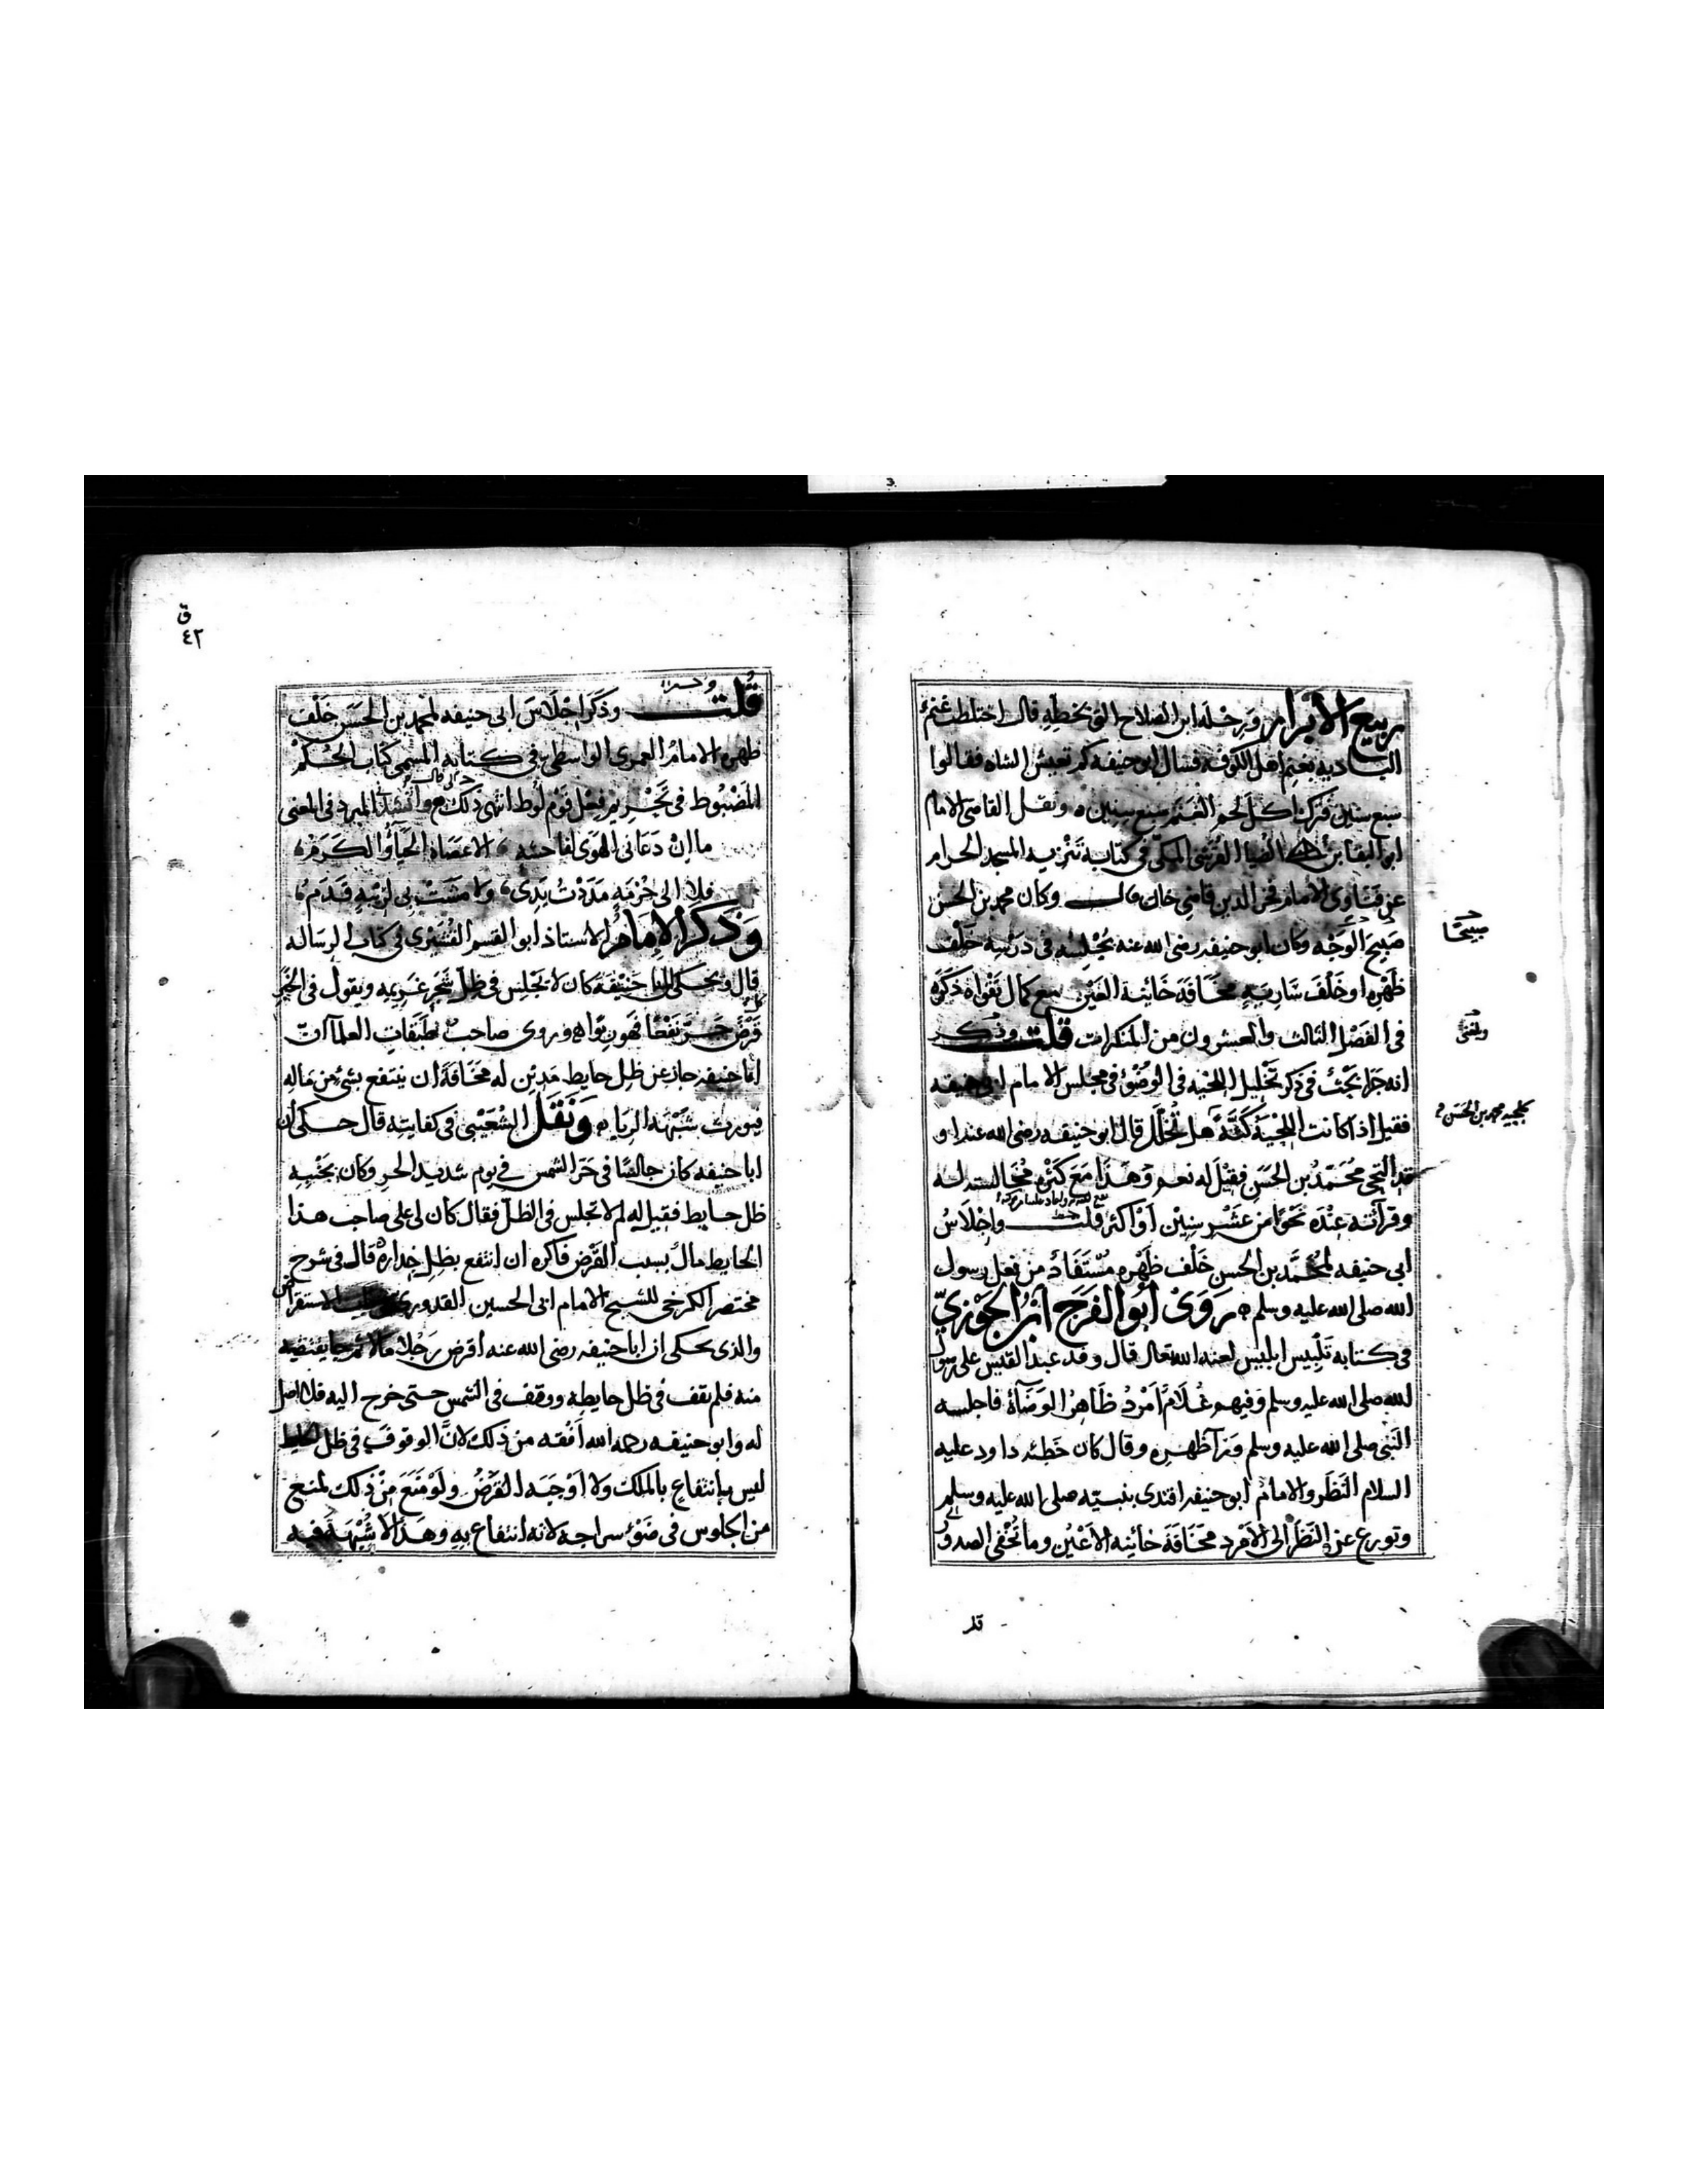 ربيع الأبرار وفي رحلة ابن الصلاح التي بخطه قال اختلطت غنم
البادية بغنم اهل الكوفة فسال ابو حنيفه كم تعيش الشاه فقالوا
سبع سنين فترك اكل لحم الغنم سبع سنين ونقل القاضي الامام
ابو البقا بن الضيا القرشي المكي في كتابه تنزيه المسجد الحرام
عن فتاوى الامام فخر الدين قاضي خان قال وكان محمد بن الحسن
صبيح الوجه وكان ابو حنيفه رضى الله عنه يجلسه في درسه خلف
ظهره او خلف سارية مخافة خائنة العين مع كمال تقواه ذكره
في الفصل الثالث والعشرون من المنكرات قلت وذكر
انه جرا بحث في ذكر تخليل اللحيه في الوضوء في مجلس الامام ابي حنيفه
فقيل اذا كانت اللحية كثة هل تخلل قال ابو حنيفه رضى الله عنه او
قد التحى محمد بن الحسن فقيل له نعم وهذا مع كثرة مجالسته له
وقرآئته عنده نحوا من عشر سنين او اكثر قلت واجلاس
ابي حنيفه لمحمد بن الحسن خلف ظهره مستفاد من فعل رسول
الله صلى الله عليه وسلم روى ابو الفرج ابن الجوزي
في كتابه تلبيس ابليس لعنه الله تعال قال وفد عبد القيس على رسول
الله صلى الله عليه وسلم وفيهم غلام امرد ظاهر الوضآة فاجلسه
النبي صلى الله عليه وسلم ورآ ظهره وقال كان خطئه داود عليه
السلام النظر والامام ابو حنيفه اقتدى بنبيه صلى الله عليه وسلم
وتورع عن النظر الى الامرد مخافة خائنه الاعين وما تخفى الصدور
صبيحًا
ق
٤٢
قلت وذكر اجلاس ابى حنيفه لمحمد بن الحسن خلف
ظهره الامام الغمرى الواسطى في كتابه المسمى كتاب الحكم
المضبوط في تحرير فعل قوم لوط انتهى ذلك وانشد المبرد في المعنى
ما ان دعاني الهوى لفاحشه الا عصاه الحيآؤ والكرم
فلا الى حرمة مددت يدى ولا مشت بى لريبه قدم
وذكر الامام الاستاذ ابو القسم القشيرى في كتاب الرساله
قال ويحكى ابا حنيفة كان لا يجلس في ظل شجر غريمه ويقول في الخبر
قرض جر نفعا فهو ربوا وروى صاحب طبقات العلما ان
ابا حنيفه جاز عن ظل حايط مدين له مخافة ان ينتفع بشئ من ماله
فيورث شبهة الرباء ونقل الشعيبي في كفايته قال حكى ان
ابا حنيفه كان جالسا في حر الشمس في يوم شديد الحر وكان بجنبه
ظل حايط فقيل له لم لا تجلس في الظل فقال كان لى على صاحب هذا
الحايط مال بسبب القرض فاكره ان انتفع بظل جداره قال في شرح
مختصر الكرخى للشيخ الامام ابى الحسين القدورى الاستقراض
والذى يحكى ان ابا حنيفه رضى الله عنه اقرض رجلا مالا ثم جا يقتضيه
منه فلم يقف في ظل حايطه ووقف في الشمس حتى خرج اليه فلا اصل
له وابو حنيفه رحمه الله افقه من ذلك لان الوقوف في ظل الحايط
ليس بانتفاع بالملك ولا اوجبه القرض ولو منع من ذلك لمنع
من الجلوس في ضوء سراجه لانه انتفاع به وهذا لا شبهة فيه